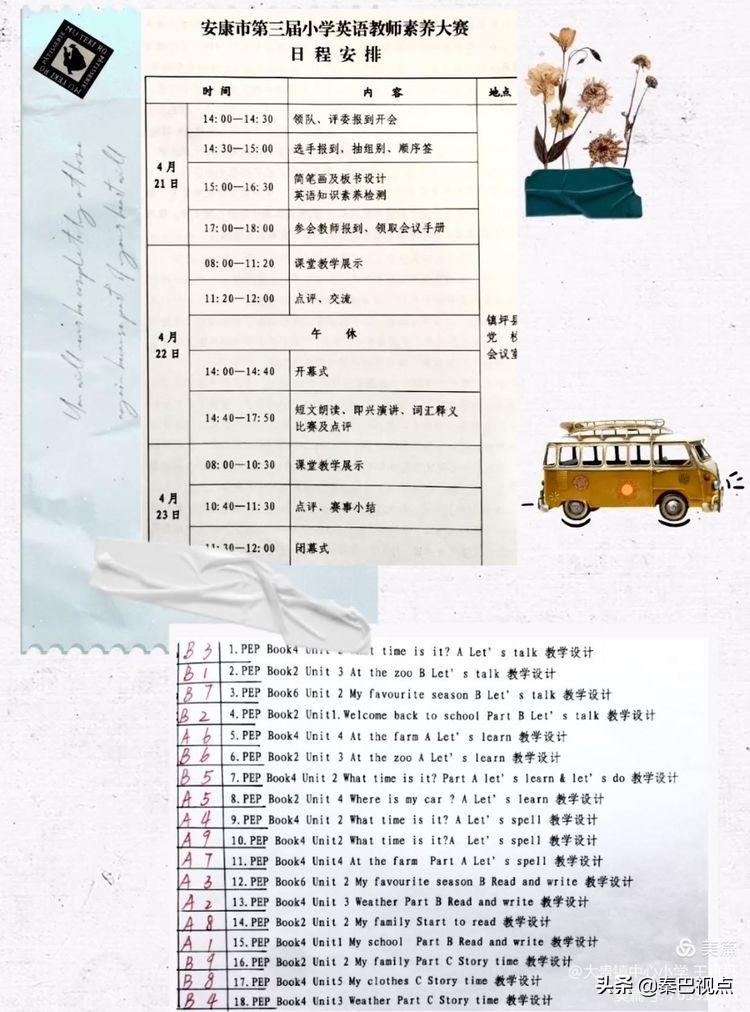 MU TEKI RO
PATISSERIE
安康市第三届小学英语教师素养大赛
日程安排
时间 内容 地点
4月21日
14:00—14:30 领队、评委报到开会
14:30—15:00 选手报到，抽组别、顺序签
15:00—16:30 简笔画及板书设计
英语知识素养检测
17:00—18:00 参会教师报到、领取会议手册
4月22日
08:00—11:20 课堂教学展示
11:20—12:00 点评、交流
午休
镇坪县
党校
会议室
14:00—14:40 开幕式
14:40—17:50 短文朗读、即兴演讲、词汇释义
比赛及点评
4月23日
08:00—10:30 课堂教学展示
10:40—11:30 点评、赛事小结
11:30—12:00 闭幕式
B 3 1.PEP Book4 time is it? A Let's talk 教学设计
B 1 2.PEP Book2 Unit 3 At the zoo B Let's talk 教学设计
B 7 3.PEP Book6 Unit 2 My favourite season B Let's talk 教学设计
B 2 4.PEP Book2 Unit1.Welcome back to school Part B Let's talk 教学设计
A 6 5.PEP Book4 Unit 4 At the farm A Let's learn 教学设计
B 6 6.PEP Book2 Unit 3 At the zoo A Let's learn 教学设计
B 5 7.PEP Book4 Unit 2 What time is it? Part A let's learn & let's do 教学设计
A 5 8.PEP Book2 Unit 4 Where is my car ? A Let's learn 教学设计
A 4 9.PEP Book4 Unit 2 What time is it? A Let's spell 教学设计
A 9 10.PEP Book4 Unit2 What time is it?A Let's spell 教学设计
A 7 11.PEP Book4 Unit4 At the farm Part A Let's spell 教学设计
A 3 12.PEP Book6 Unit 2 My favourite season B Read and write 教学设计
A 2 13.PEP Book4 Unit 3 Weather Part B Read and write 教学设计
A 8 14.PEP Book2 Unit 2 My family Start to read 教学设计
A 1 15.PEP Book4 Unit1 My school Part B Read and write 教学设计
B 9 16.PEP Book2 Unit 2 My family Part C Story time 教学设计
B 8 17.PEP Book4 Unit5 My clothes C Story time 教学设计
B 4 18.PEP Book4 Unit3 Weather Part C Story time 教学设计
美篇
头条 @秦巴视点